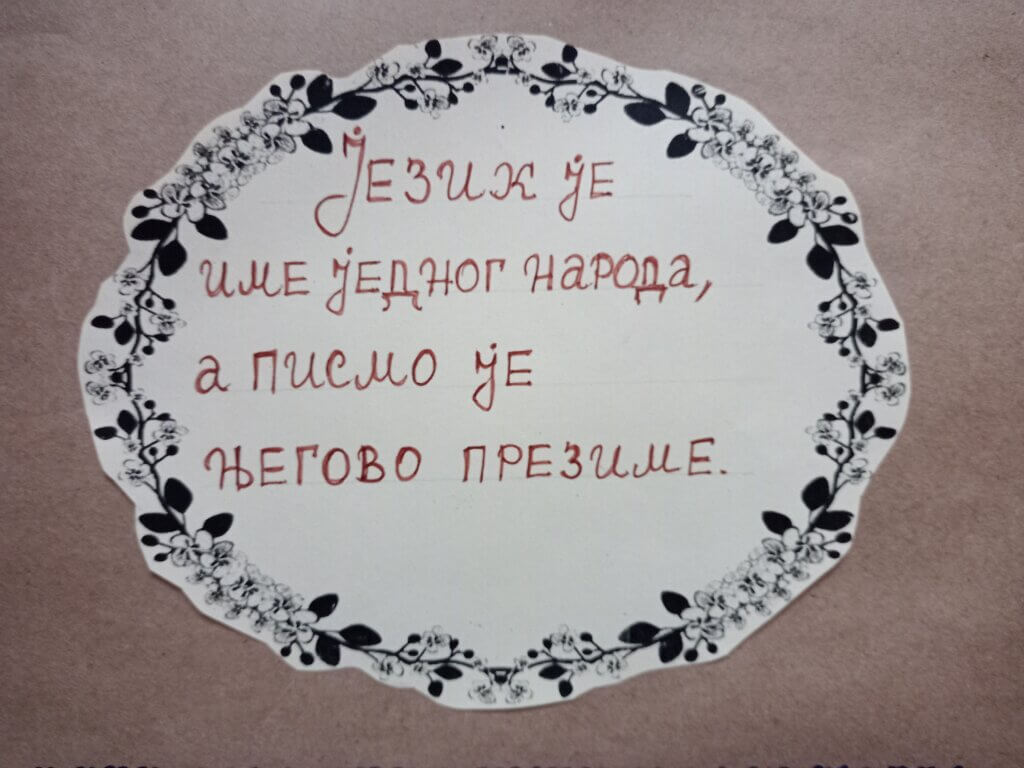 Језик је
име једног народа,
а писмо је
његово презиме.